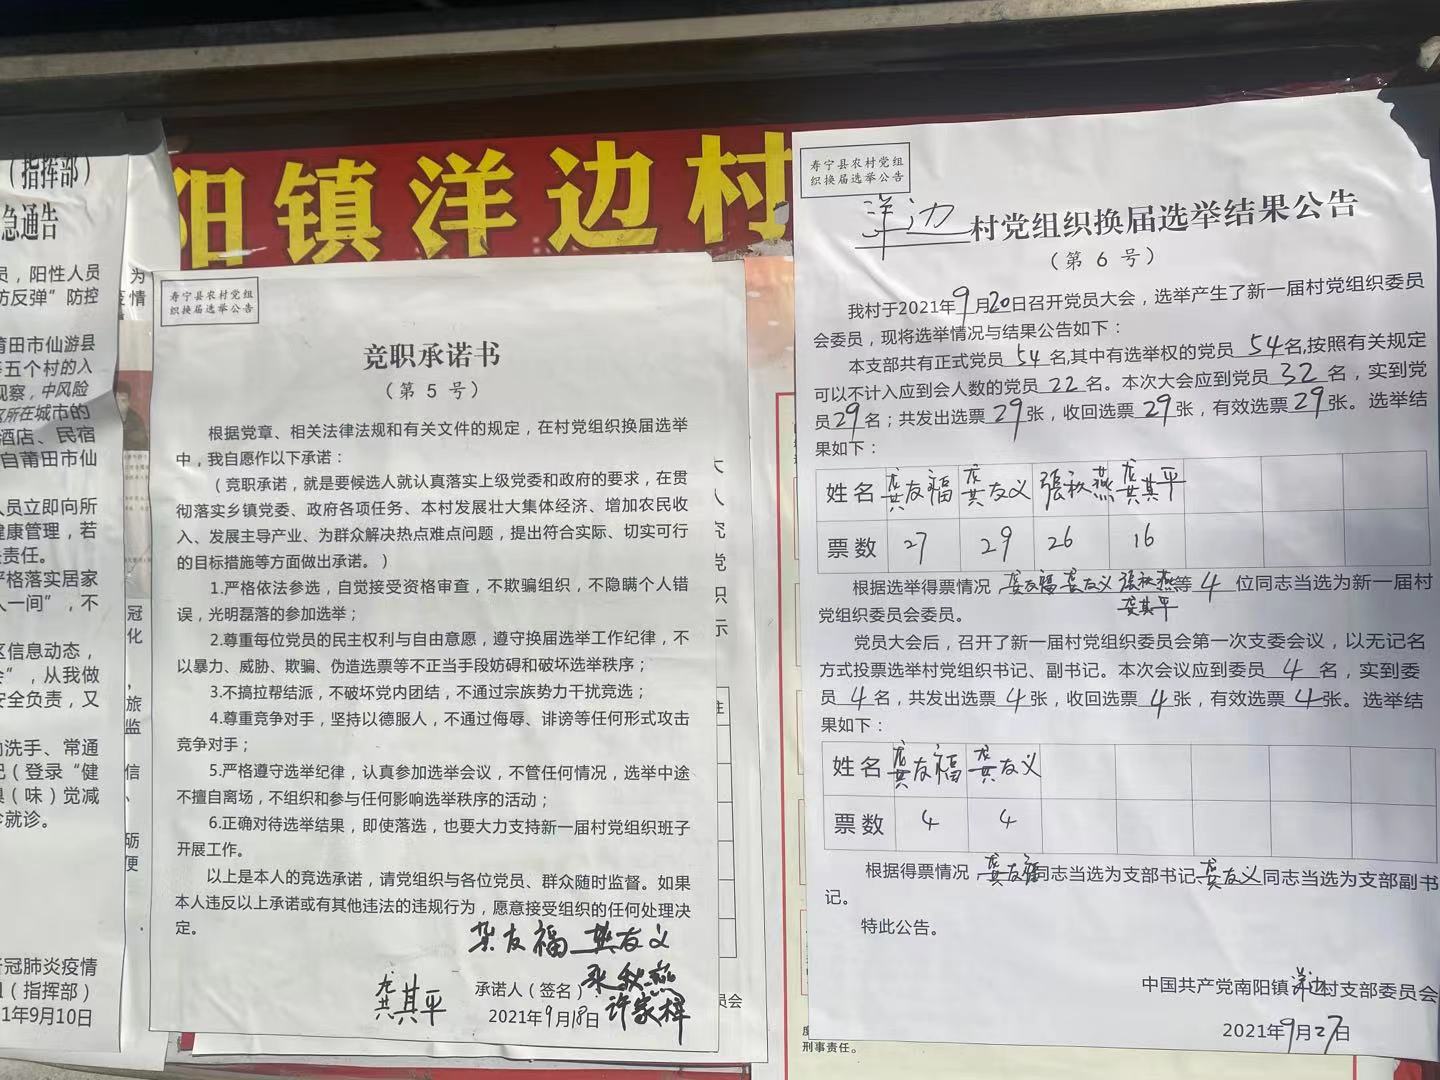 （指挥部）
急通告
员，阳性人员
防反弹”防控
莆田市仙游县
等五个村的入
观察，中风险
区所在城市的
酒店、民宿
自莆田市仙
人员立即向所
健康管理，若
责任。
严格落实居家
人一间”，不
区信息动态，
”，从我做
安全负责，又
洗手、常通
（登录“健
（味）觉减
就诊。
冠肺炎疫情
（指挥部）
1年9月10日
为
疫情
冠
化
，
旅
监
信
、
砺
便
阳镇洋边村
寿宁县农村党组
织换届选举公告
竞职承诺书
（第 5 号）
根据党章、相关法律法规和有关文件的规定，在村党组织换届选举
中，我自愿作以下承诺：
（竞职承诺，就是要候选人就认真落实上级党委和政府的要求，在贯
彻落实乡镇党委、政府各项任务、本村发展壮大集体经济、增加农民收
入、发展主导产业、为群众解决热点难点问题，提出符合实际、切实可行
的目标措施等方面做出承诺。）
1.严格依法参选，自觉接受资格审查，不欺骗组织，不隐瞒个人错
误，光明磊落的参加选举；
2.尊重每位党员的民主权利与自由意愿，遵守换届选举工作纪律，不
以暴力、威胁、欺骗、伪造选票等不正当手段妨碍和破坏选举秩序；
3.不搞拉帮结派，不破坏党内团结，不通过宗族势力干扰竞选；
4.尊重竞争对手，坚持以德服人，不通过侮辱、诽谤等任何形式攻击
竞争对手；
5.严格遵守选举纪律，认真参加选举会议，不管任何情况，选举中途
不擅自离场，不组织和参与任何影响选举秩序的活动；
6.正确对待选举结果，即使落选，也要大力支持新一届村党组织班子
开展工作。
以上是本人的竞选承诺，请党组织与各位党员、群众随时监督。如果
本人违反以上承诺或有其他违法的违规行为，愿意接受组织的任何处理决
定。
龚友福 龚友义
张秋燕
龚其平 承诺人（签名）： 许家梓
2021年9月18日
大
人
究
党
职
示
注
员会
刑事责任。
寿宁县农村党组
织换届选举公告
洋边村党组织换届选举结果公告
（第 6 号）
我村于2021年9月20日召开党员大会，选举产生了新一届村党组织委员
会委员，现将选举情况与结果公告如下：
本支部共有正式党员 54名,其中有选举权的党员 54名,按照有关规定
可以不计入应到会人数的党员 22 名。本次大会应到党员 32 名，实到党
员29名；共发出选票 29张，收回选票 29张，有效选票29张。选举结
果如下：
姓名 龚友福 龚友义 張秋燕 龚其平
票数 27 29 26 16
根据选举得票情况 龚友福 龚友义 張秋燕等 4 位同志当选为新一届村
龚其平
党组织委员会委员。
党员大会后，召开了新一届村党组织委员会第一次支委会议，以无记名
方式投票选举村党组织书记、副书记。本次会议应到委员 4 名，实到委
员 4 名，共发出选票 4 张，收回选票 4 张，有效选票 4 张。选举结
果如下：
姓名 龚友福 龚友义
票数 4 4
根据得票情况 龚友福同志当选为支部书记龚友义同志当选为支部副书
记。
特此公告。
中国共产党南阳镇洋边村支部委员会
2021年9月27日